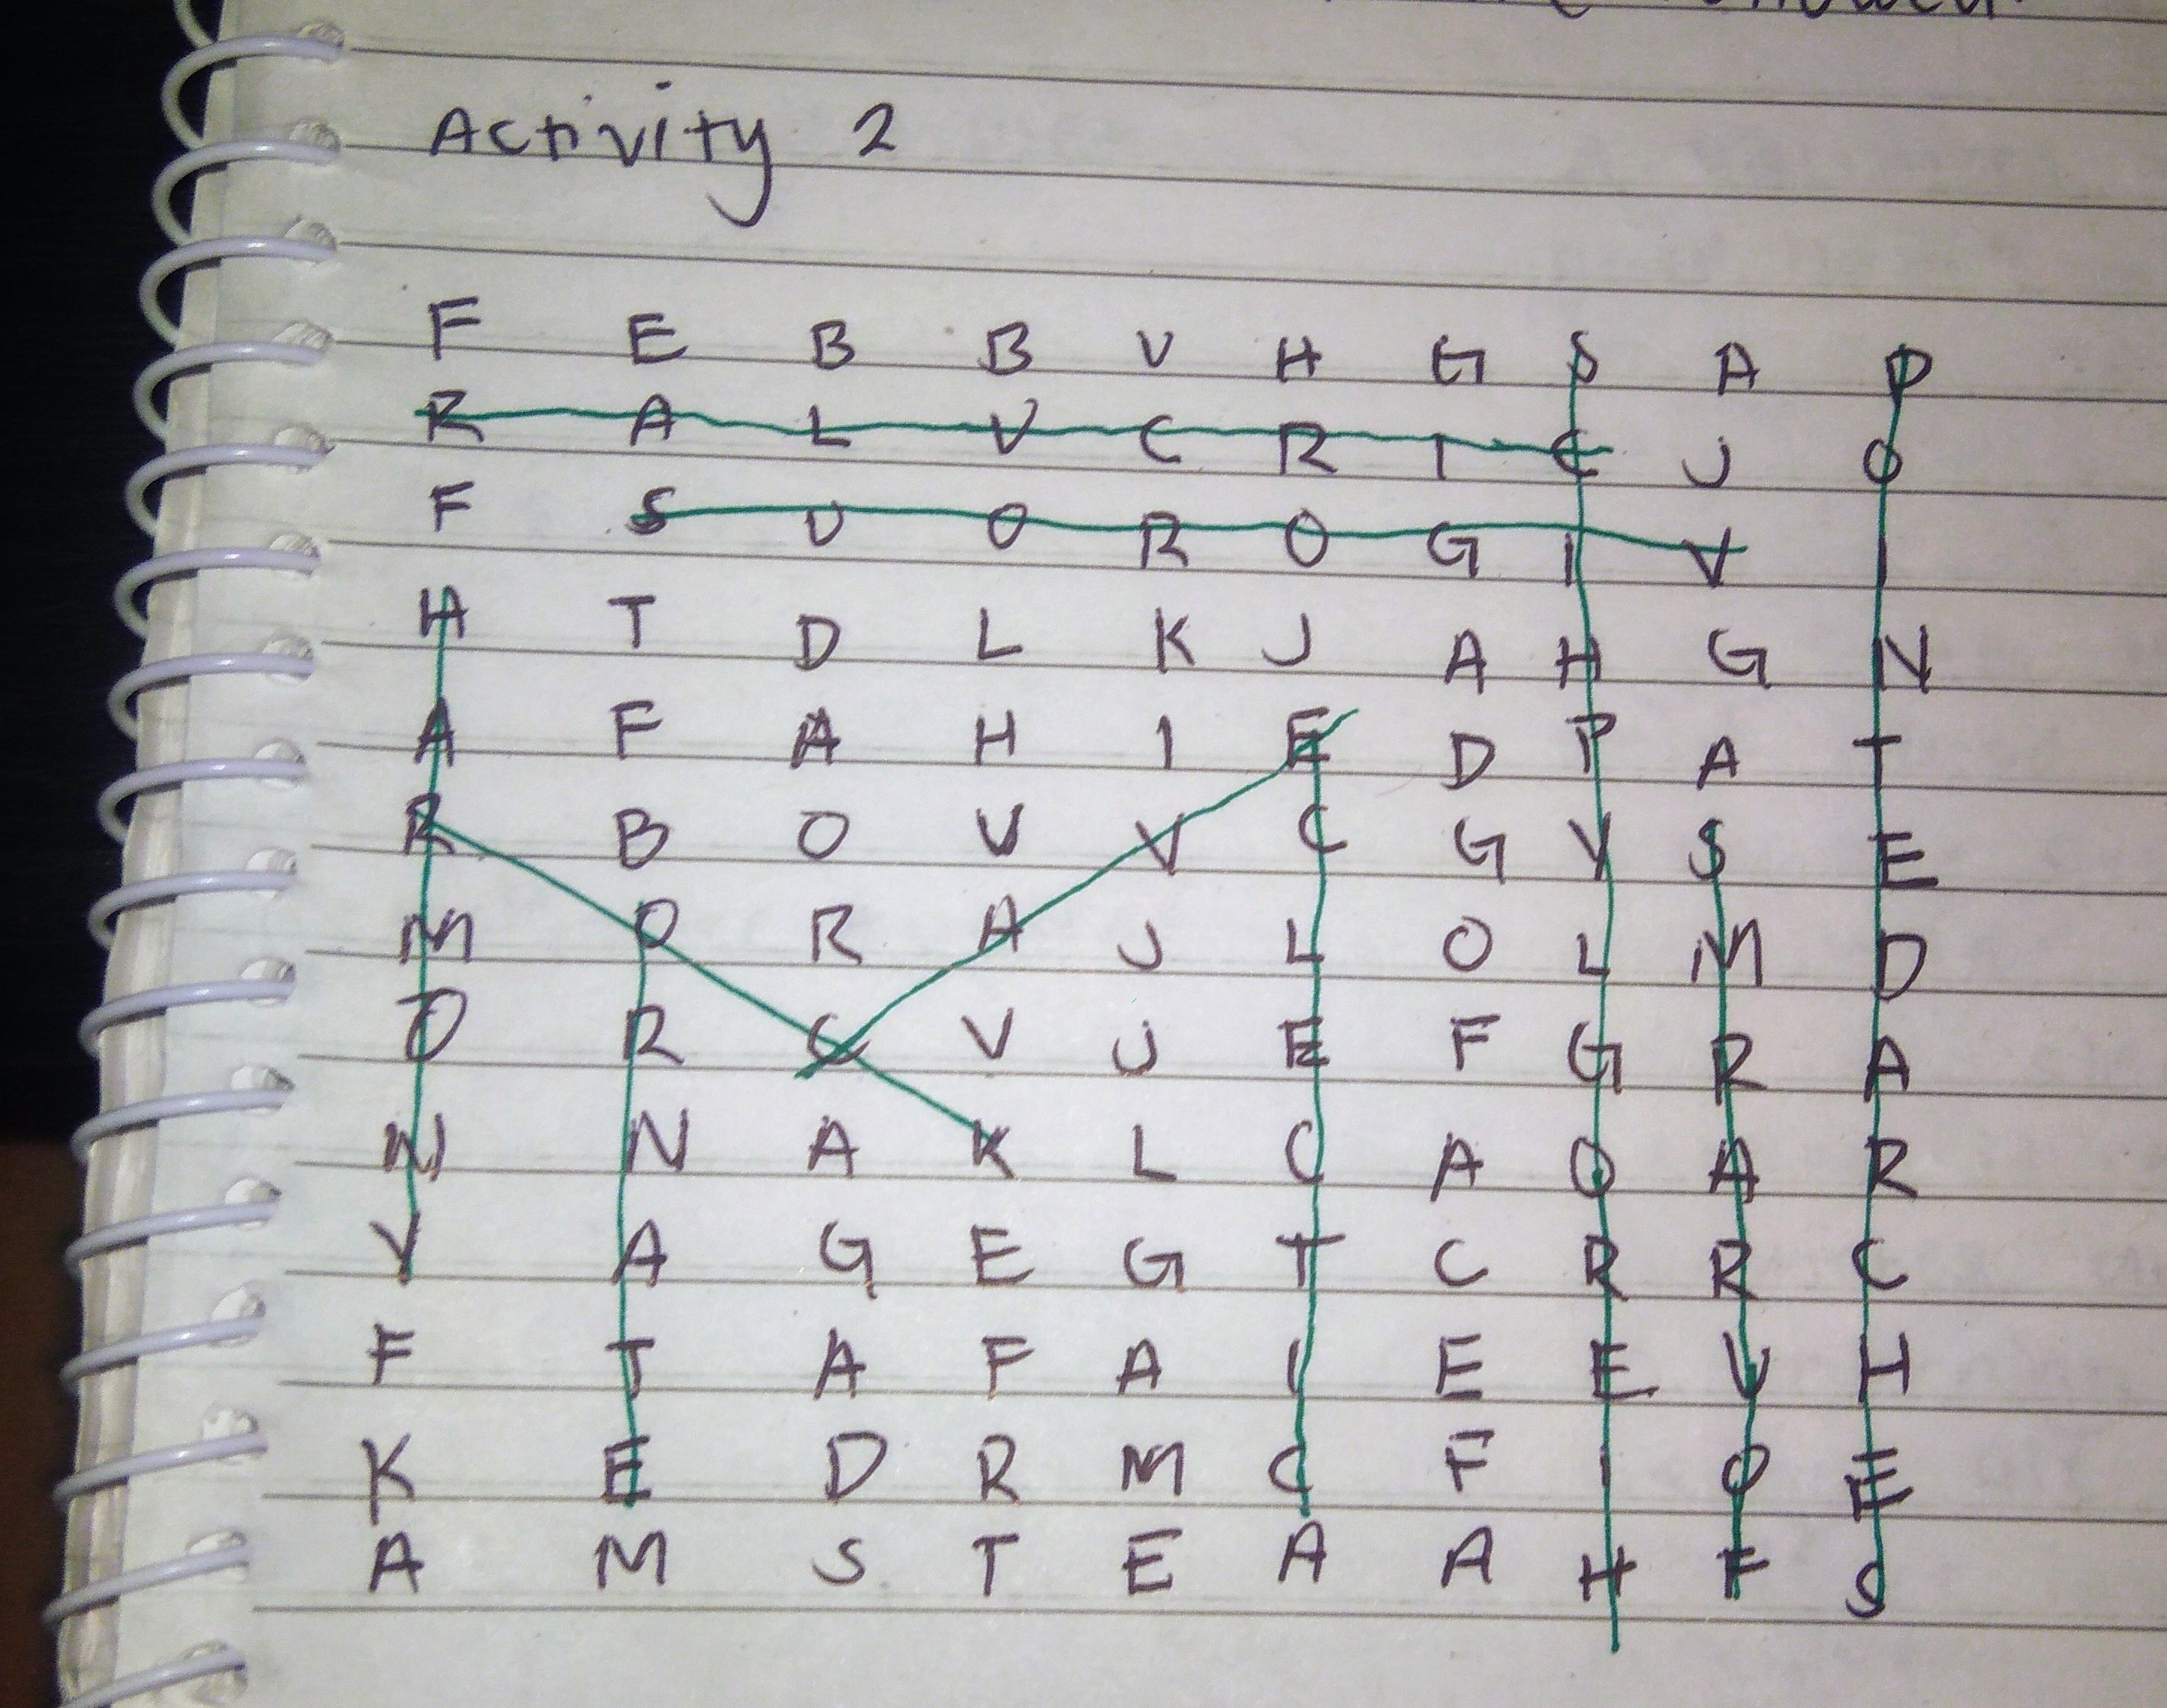 Activity 2
F E B B V H G S A P
R A L V C R I C J O
F S U O R O G I V I
H T D L K J A H G N
A F A H I E D P A T
R B O U V C G Y S E
M O R A J L O L M D
O R C V J E F G R A
N N A K L C A O A R
V A G E G T C R R C
F T A F A I E E U H
K E D R M C F I O E
A M S T E A A H F S